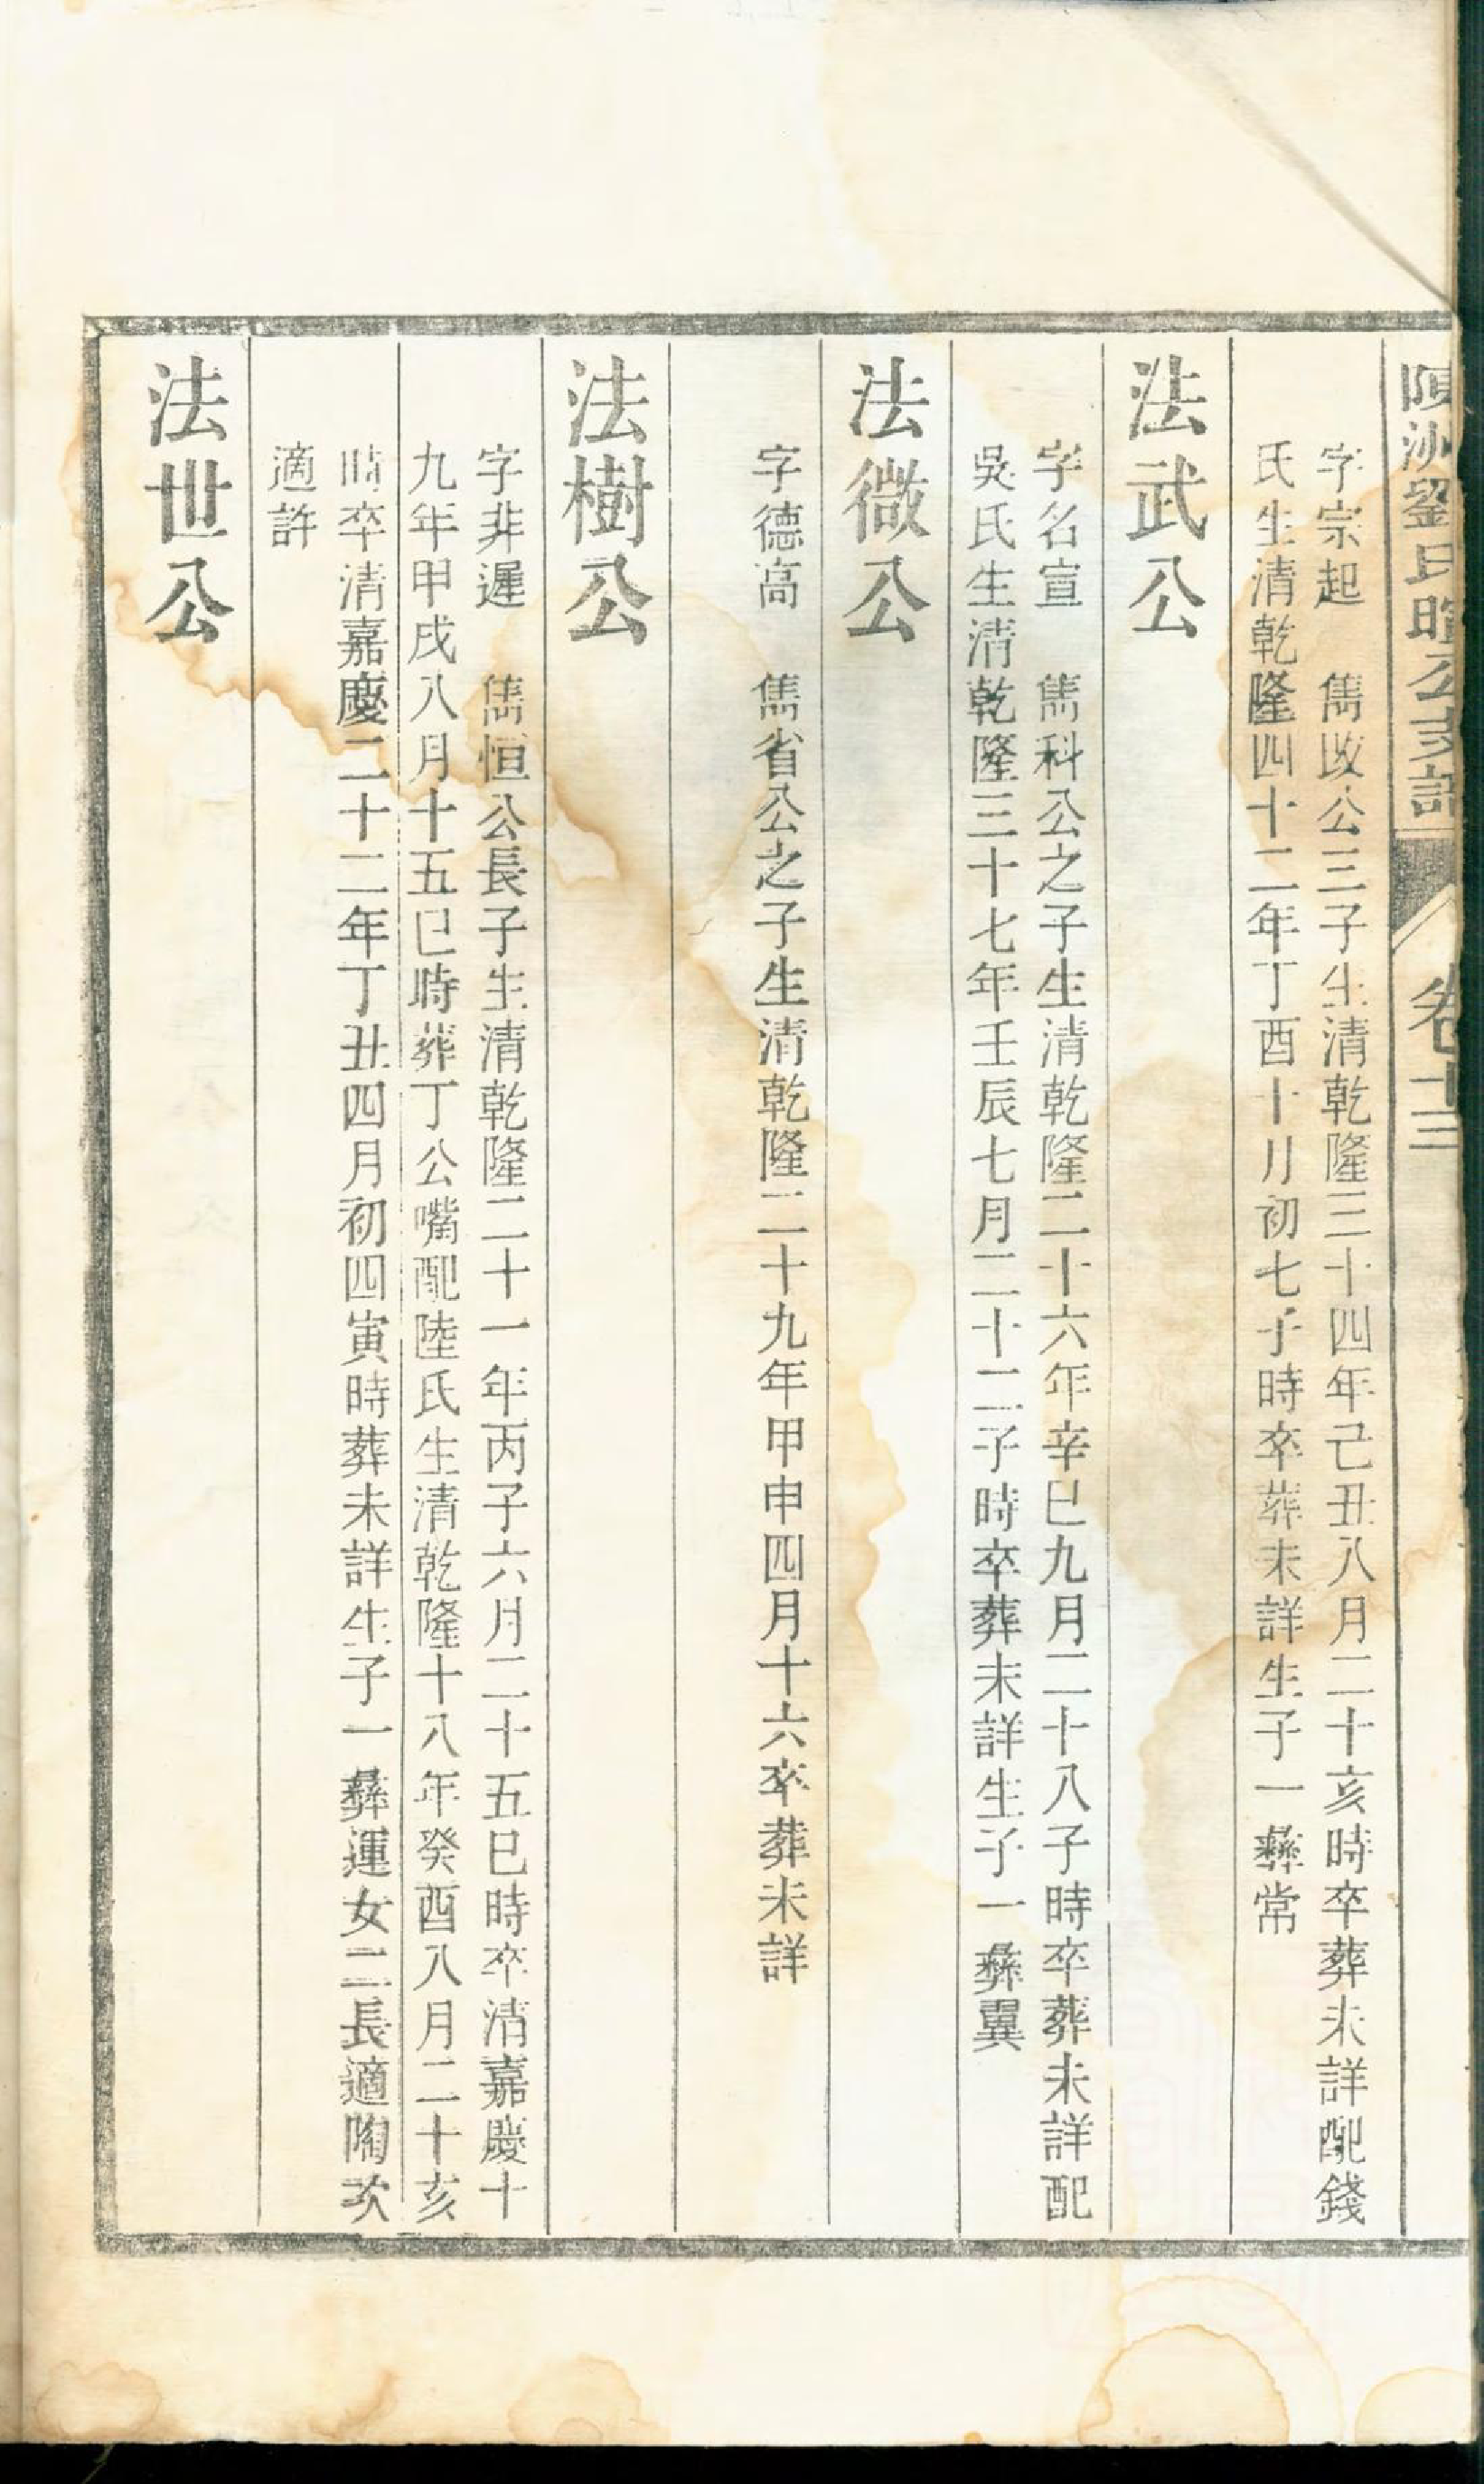 劉氏暄公支譜
卷十三
字宗起　儁政公三子生清乾隆三十四年己丑八月二十亥時卒葬未詳配錢
氏生清乾隆四十二年丁酉十月初七子時卒葬未詳生子一彝常
法武公
字名宣　儁科公之子生清乾隆二十六年辛巳九月二十八子時卒葬未詳配
吳氏生清乾隆三十七年壬辰七月二十二子時卒葬未詳生子一彝翼
法微公
字德高　儁省公之子生清乾隆二十九年甲申四月十六卒葬未詳
法樹公
字非遲　儁恒公長子生清乾隆二十一年丙子六月二十五巳時卒清嘉慶十
九年甲戌八月十五巳時葬丁公嘴配陸氏生清乾隆十八年癸酉八月二十亥
時卒清嘉慶二十二年丁丑四月初四寅時葬未詳生子一彝運女二長適陶次
適許
法世公